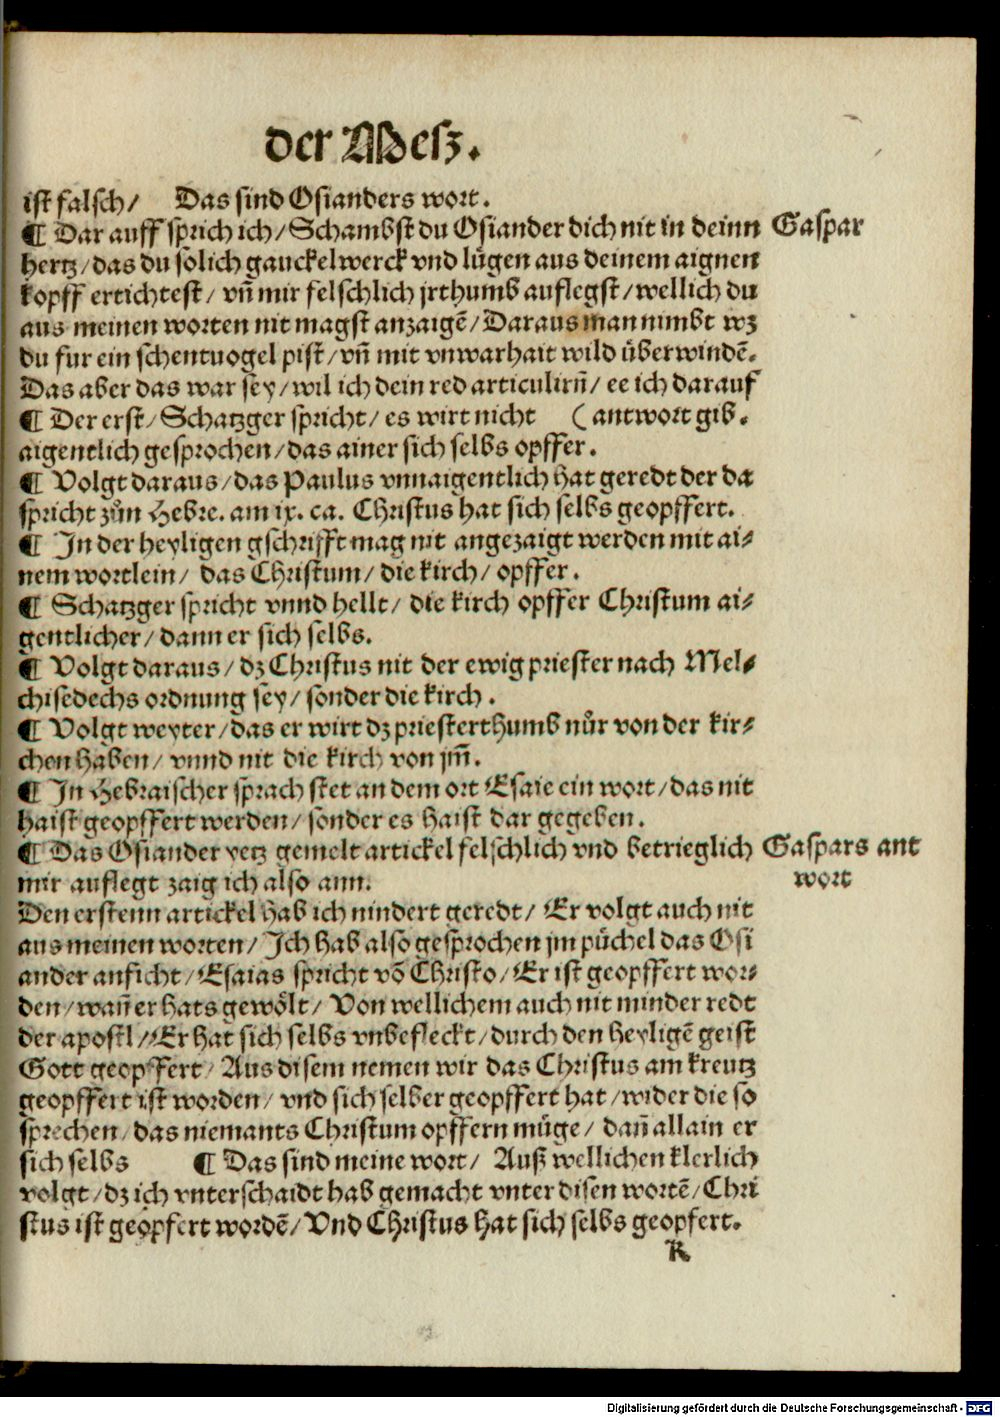 der Mesz.
ist falsch/ Das sind Osianders wort.
¶ Dar auff sprich ich/Schambst du Osiander dich nit in deinn Gaspar
hertz/das du solich gauckelwerck vnd lügen aus deinem aignen
kopff ertichtest/ vn̄ mir felschlich jrthumb auflegst/wellich du
aus meinen worten nit magst anzaigē/Daraus man nimbt wz
du fur ein schentuogel pist/vn̄ mit vnwarhait wild überwindē.
Das aber das war sey/wil ich dein red articulirn̄/ee ich darauf
¶ Der erst/Schatzger spricht/es wirt nicht (antwort gib.
aigentlich gesprochen/das ainer sich selbs opffer.
¶ Volgt daraus/das Paulus vnnaigentlich hat geredt der da
spricht zůn Hebre. am ix. ca. Christus hat sich selbs geopffert.
¶ In der heyligen gschrifft mag nit angezaigt werden mit ai⸗
nem wortlein/ das Christum/die kirch/opffer.
¶ Schatzger spricht vnnd hellt/ die kirch opffer Christum ai⸗
gentlicher/dann er sich selbs.
¶ Volgt daraus/dz Christus nit der ewig priester nach Mel⸗
chisedechs ordnung sey/sonder die kirch.
¶ Volgt weyter/das er wirt dz priesterthumb nůr von der kir⸗
chen haben/ vnnd nit die kirch von jm̄.
¶ In Hebraischer sprach stet an dem ort Esaie ein wort/das nit
haist geopffert werden/sonder es haist dar gegeben.
¶ Das Osiander yetz gemelt artickel felschlich vnd betrieglich Gaspars ant
mir auflegt zaig ich also ann. wort
Den erstenn artickel hab ich nindert geredt/ Er volgt auch nit
aus meinen worten/Ich hab also gesprochen jm püchel das Osi
ander anficht/Esaias spricht vō Christo/Er ist geopffert wor⸗
den/wan̄ er hats gewölt/ Von wellichem auch nit minder redt
der apostl/Er hat sich selbs vnbefleckt/durch den heyligē geist
Gott geopffert/ Aus disem nemen wir das Christus am kreutz
geopffert ist worden/ vnd sich selber geopffert hat/wider die so
sprechen/das niemants Christum opffern müge/ dan̄ allain er
sich selbs ¶ Das sind meine wort/ Auß wellichen klerlich
volgt/dz ich vnterschaidt hab gemacht vnter disen wortē/Chri
stus ist geopfert wordē/Vnd Christus hat sich selbs geopfert.
K
Digitalisierung gefördert durch die Deutsche Forschungsgemeinschaft - DFG